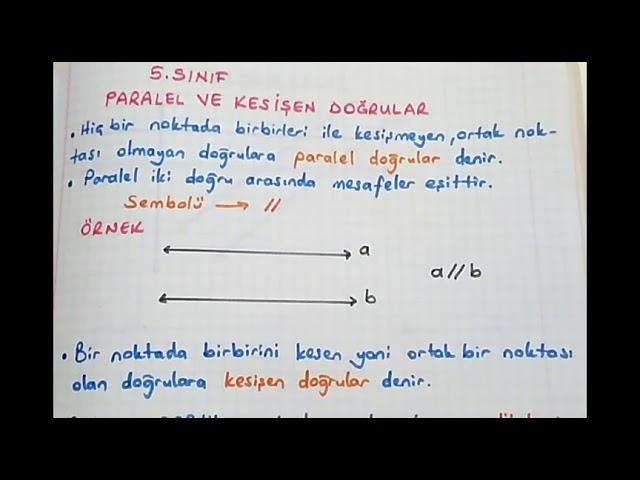 5. SINIF
PARALEL VE KESİŞEN DOĞRULAR
• Hiç bir noktada birbirleri ile kesişmeyen, ortak nok-
tası olmayan doğrulara paralel doğrular denir.
• Paralel iki doğru arasında mesafeler eşittir.
Sembolü → //
ÖRNEK
a
a // b
b
• Bir noktada birbirini kesen yani ortak bir noktası
olan doğrulara kesişen doğrular denir.